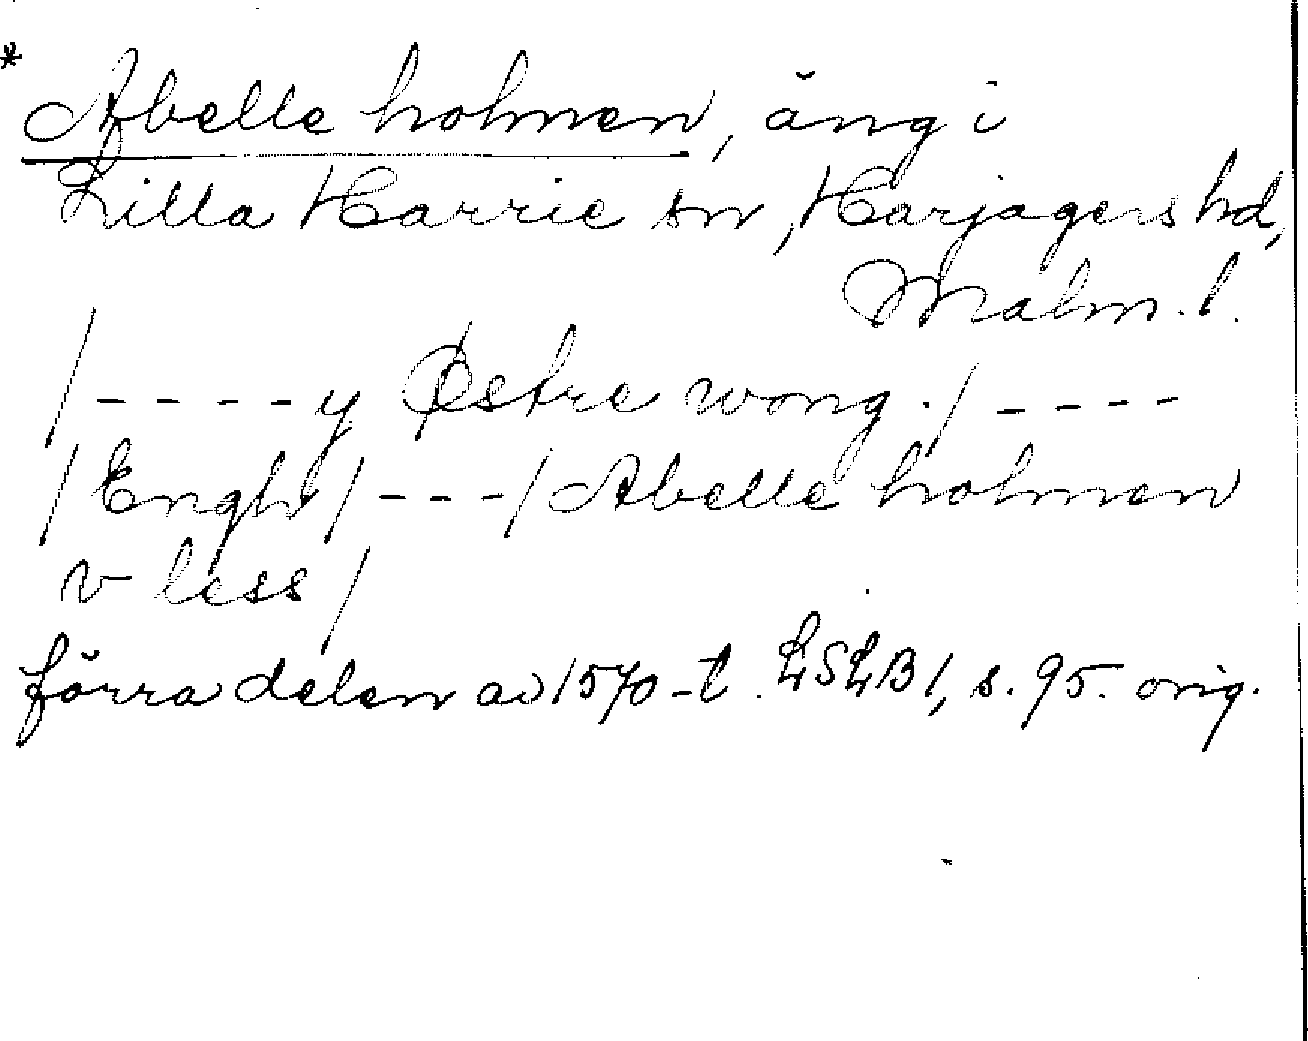 * Abelle holmen, äng i
Lilla Harrie sn, Harjagers hd,
Malm. l.
/ - - - - y Østre wong ./ - - - -
/ Engh / - - - / Abelle holmen
v less /
förra delen av 1570-t. LSLB 1, s. 95. orig.